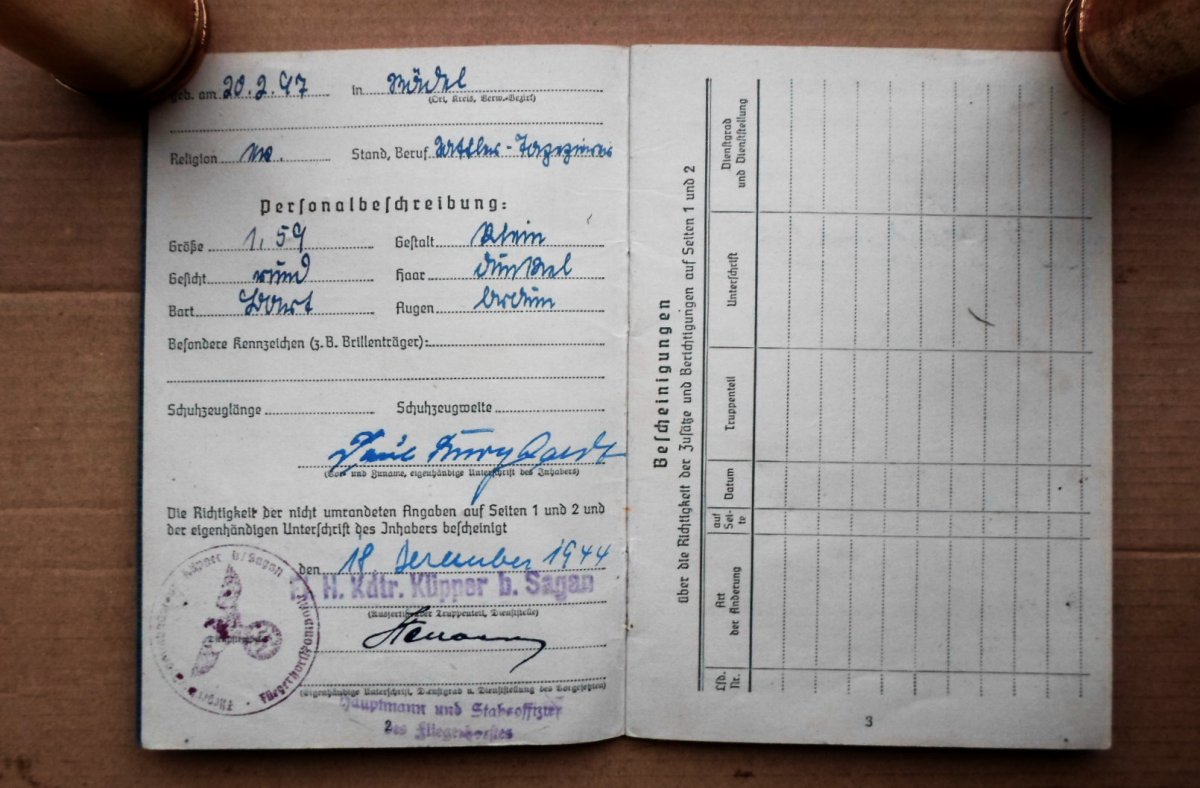 geb. am 20.2.97 in
(Ort, Kreis, Verw.-Bezirk)
Religion Stand, Beruf Sattler-Tapezierer
Personalbeschreibung:
Größe 1,59 Gestalt klein
Gesicht rund Haar dunkel
Bart Bart Augen braun
Besondere Kennzeichen (z.B. Brillenträger):
Schuhzeuglänge Schuhzeugweite
(Vor- und Zuname, eigenhändige Unterschrift des Inhabers)
Die Richtigkeit der nicht umrandeten Angaben auf Seiten 1 und 2 und
der eigenhändigen Unterschrift des Inhabers bescheinigt
den 18 Dezember 1944
H. Kdtr. Küpper b. Sagan
(Ausfertigender Truppenteil, Dienststelle)
(Eigenhändige Unterschrift, Dienstgrad u. Dienststellung des Vorgesetzten)
Hauptmann und Stabsoffizier
des Fliegerhorstes
2
Küpper b/Sagan
Bescheinigungen
über die Richtigkeit der Zusätze und Berichtigungen auf Seiten 1 und 2
Lfd. Nr.
Art der Änderung
auf Sei-te
Datum
Truppenteil
Unterschrift
Dienstgrad und Dienststellung
3